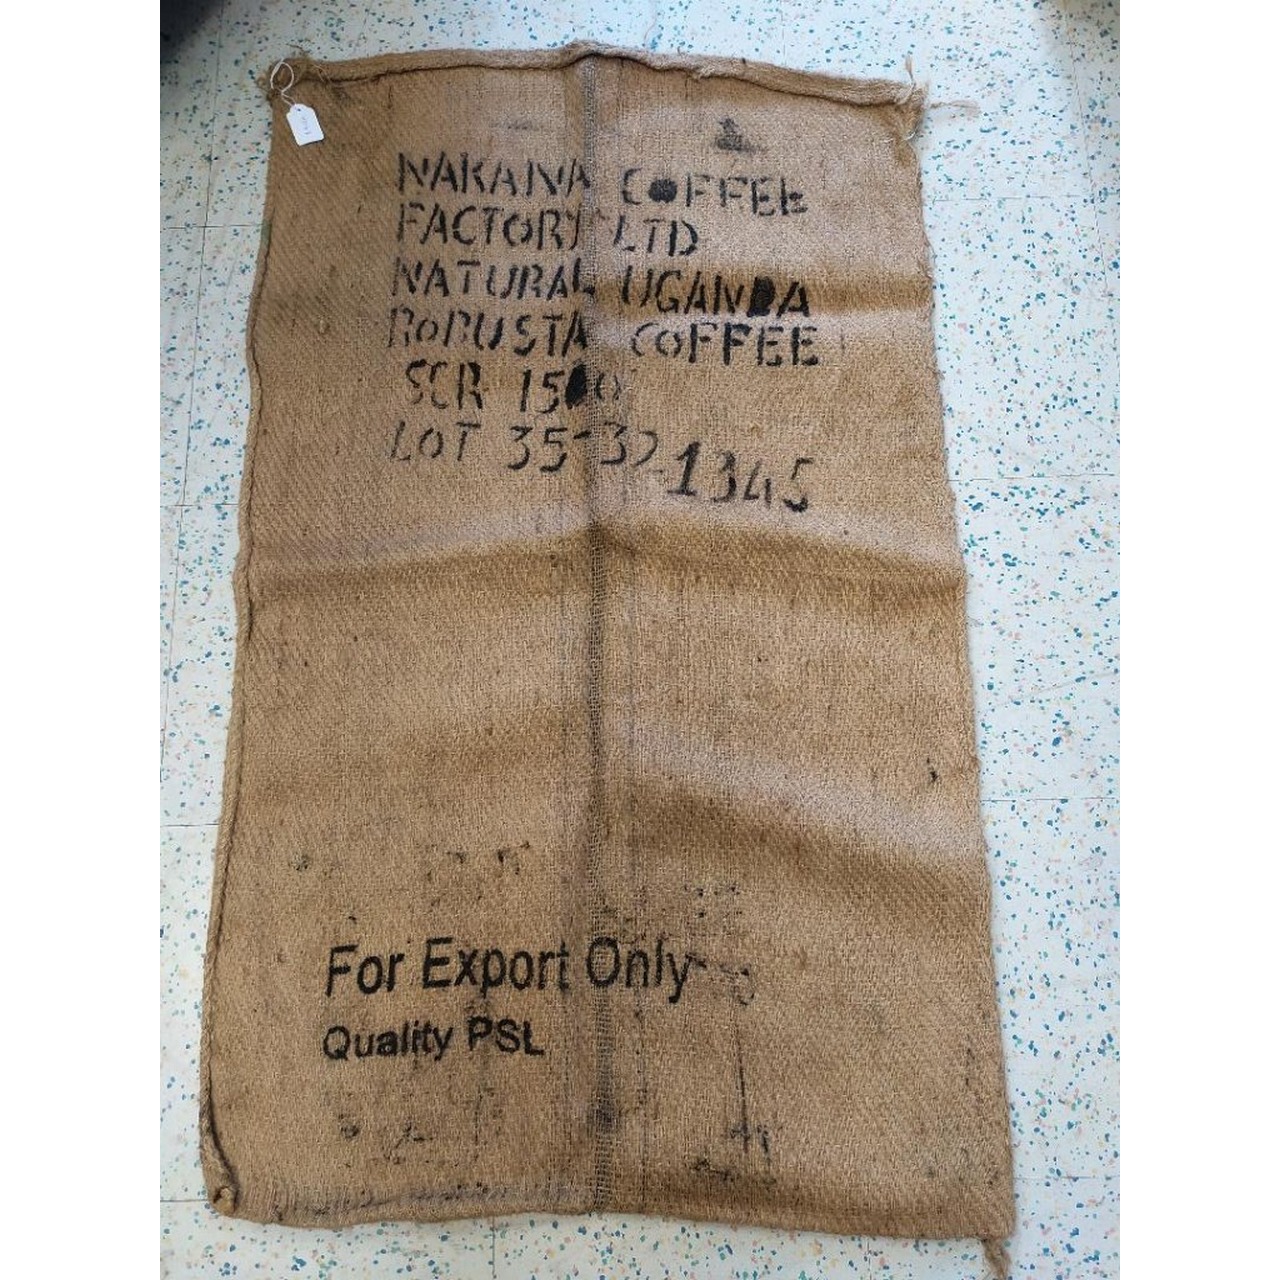 NAKANA COFFEE
FACTORY LTD
NATURAL UGANDA
ROBUSTA COFFEE
SCR 1500
LOT 35-32-1345
For Export Only
Quality PSL